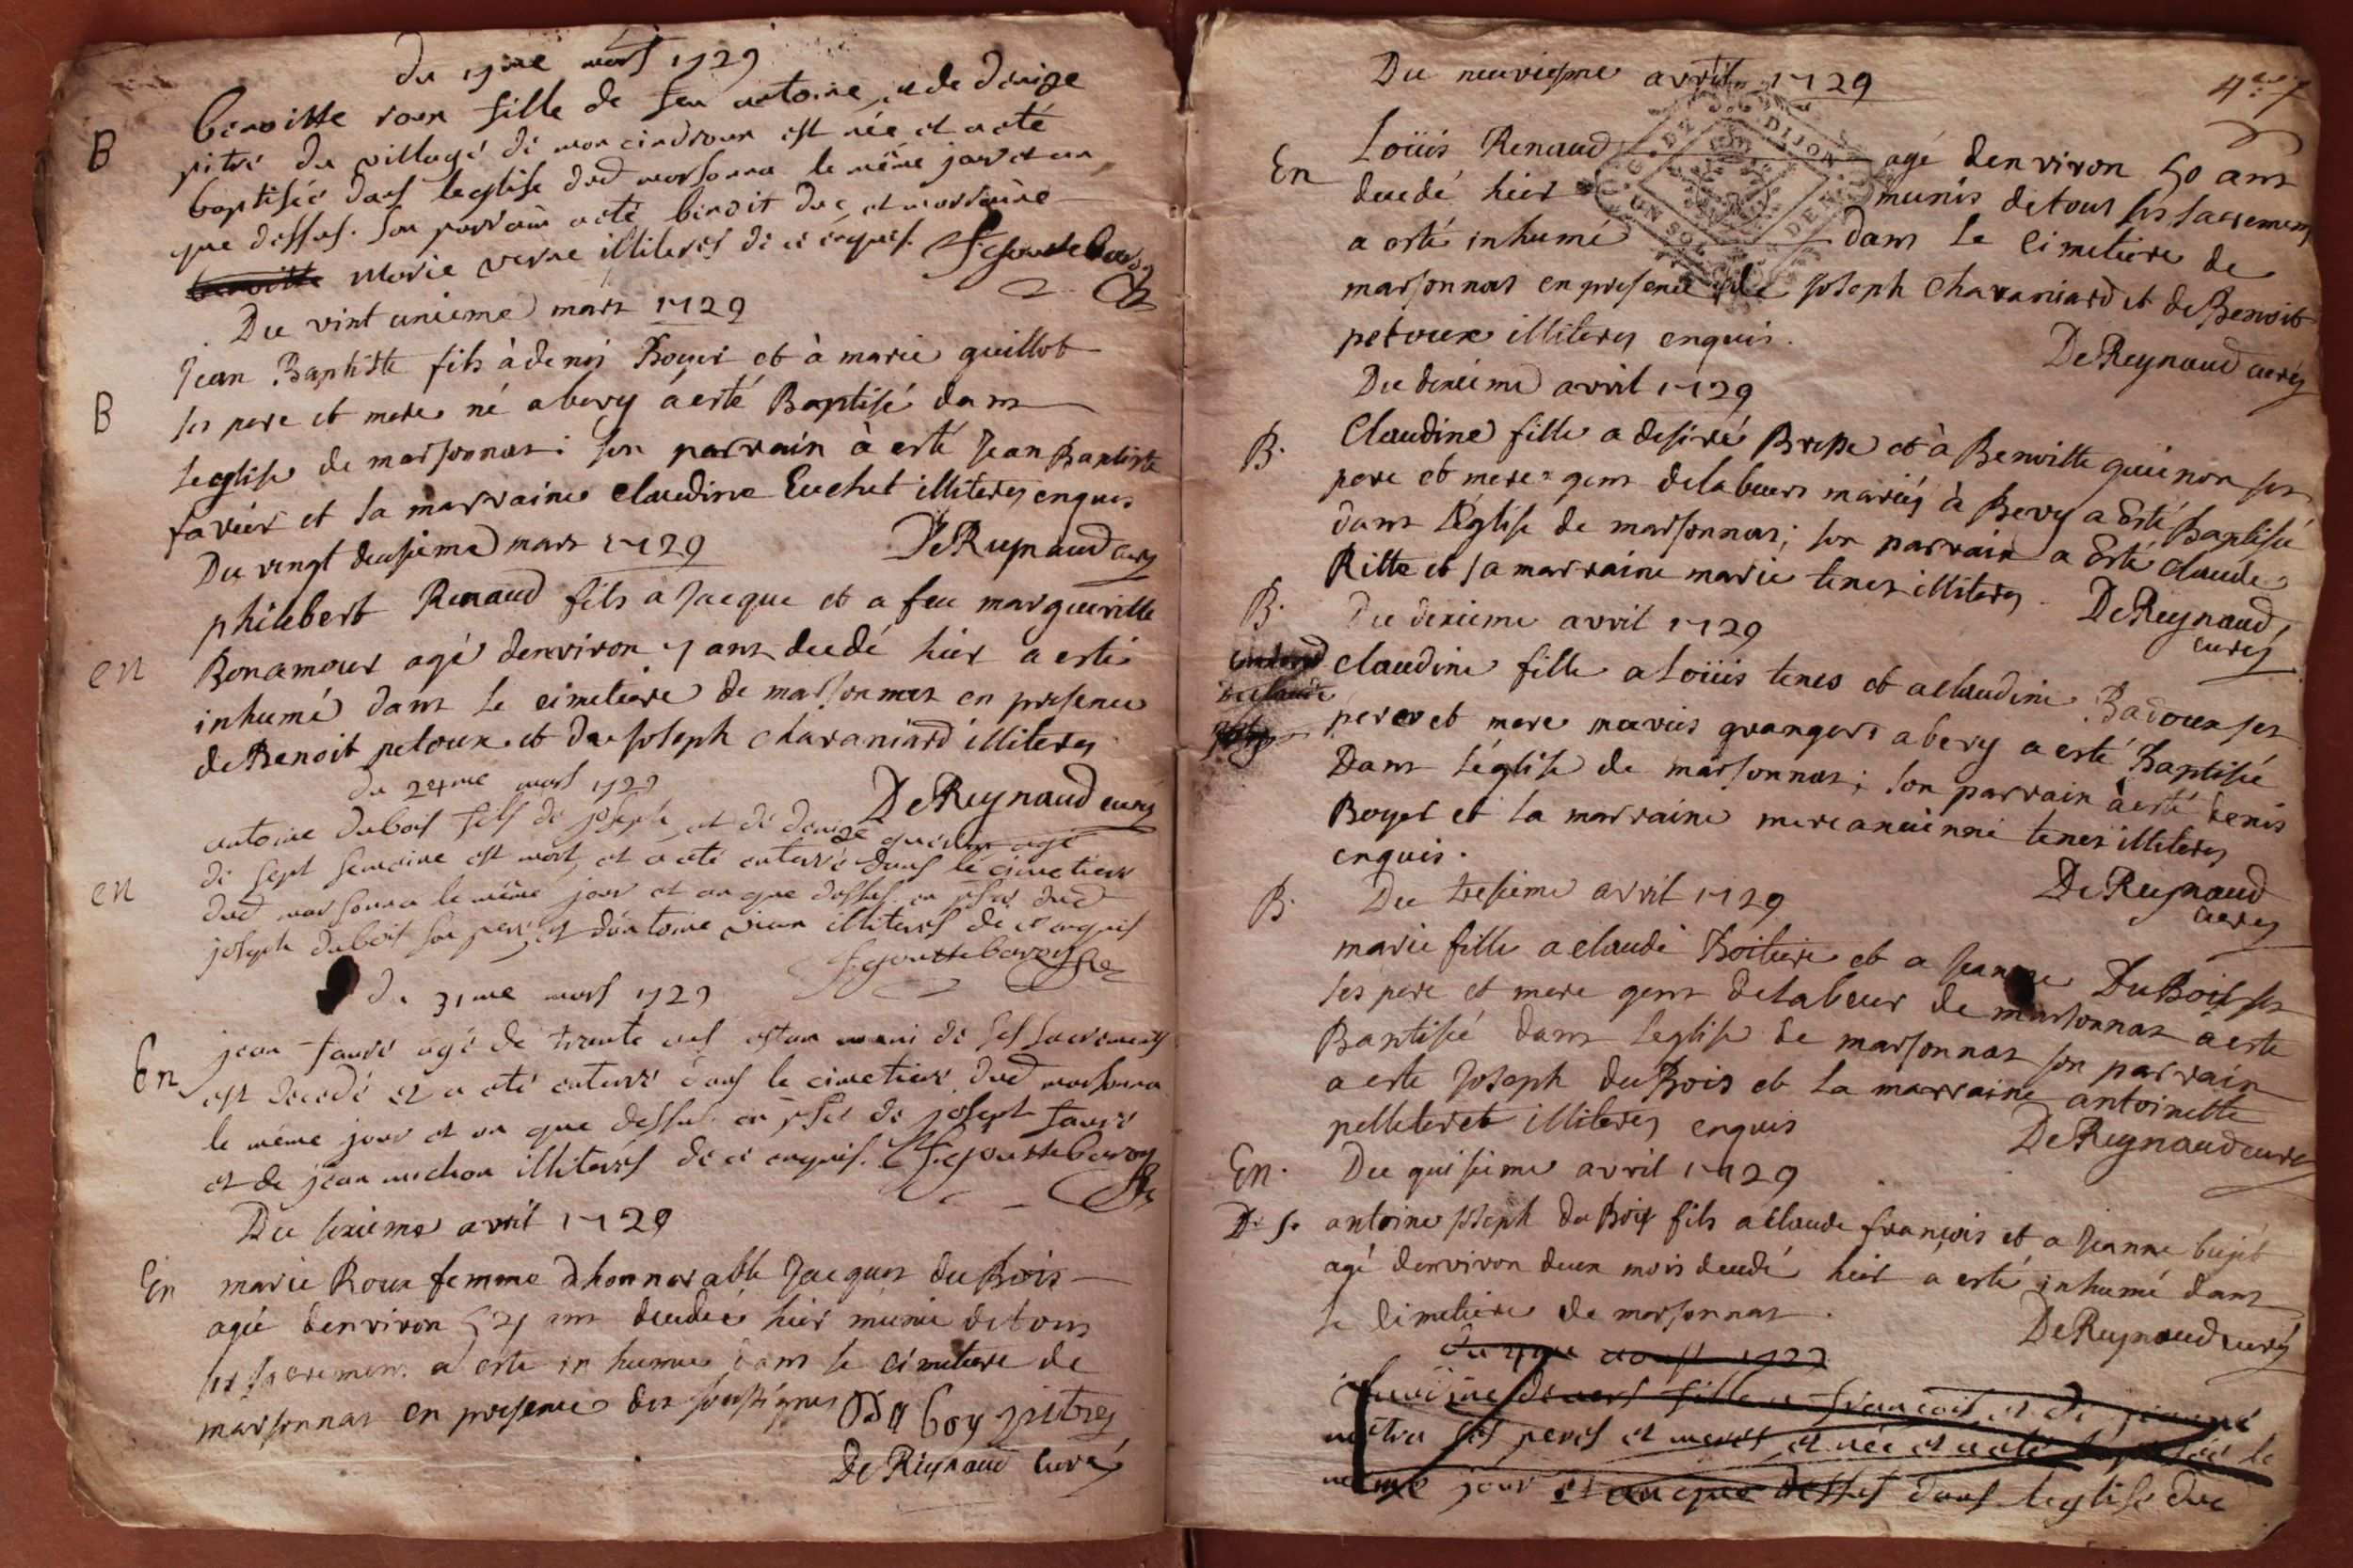 du 19me mars 1729
B
benoitte roux fille de feu antoine, et de denize
pitre du village de moncindroux est née et a eté
baptisée dans leglise dud marsonna le même jour et an
que dessus. son parrain a eté benoit duc, et marraine
marie verne illiteres de ce enquis.
Du vint unieme mars 1729
B
Jean Baptiste fils à denis Boyer et à marie guillot
ses pere et mere né a bevy à esté Baptisé dans
leglise de marsonnas; son parrain à esté Jean Baptiste
favier et la marraine claudine Euchet illiteres enquis
DeReynaud curé
Du vingt deusieme mars 1729
en
philebert Renaud fils a Jacque et a feu margueritte
Bonamour agé denviron 7 ans decedé hier a esté
inhumé dans le cimetiere de marsonnas en presence
de Benoit petoux et de Joseph charaniard illiteres
DeReynaud curé
du 24me mars 1729
en
antoine dubois fils de joseph, et de denize agé
de sept semaine est mort, et a eté enterré dans le cimetiere
dud marsonna le même jour et an que dessus en pñce dud
joseph dubois son pere, et dantoine vian illiteres de ce enquis
du 31me mars 1729
En
jean faure agé de trente ans estan muni de ses sacrements
est decedé et a eté enterré dans le cimetiere dud marsonna
le même jour et an que dessus en pñce de joseph faure
et de jean michon illiteres de ce enquis.
Du sixieme avril 1729
En
marie Roux femme dhonnorable Jacques du Bois
agée denviron ans decedée hier munie de tous
ses sacremens a esté inhumée dans le cimetiere de
marsonnas en presence des soussignes
DeReynaud curé
Du neuviesme avril 1729
G. DE DIJON
UN SOL
En
Loüis Renaud agé denviron 50 ans
decedé hier munis de tous ses sacremens
a esté inhumé dans le cimetiere de
marsonnas en presence de Joseph charaniard et de Benoit
petoux illiteres enquis.
DeReynaud curé
Du dixieme avril 1729
B.
Claudine fille a desiré Bresse et à Benoitte guienon ses
pere et mere gens delabeurs mariés à Bevy a Esté Baptisée
dans l'Eglise de marsonnas; son parrain a Esté claude
Ritte et sa marraine marie tenes illiteres.
DeReynaud
curé
B.
Du dixieme avril 1729
claudine fille a Loüis tenes et a claudine Badoux ses
pere et mere mariés grangers a bevy a esté Baptisée
Dans l'église de marsonnas; son parrain à esté denis
Boyer et la marraine tenes illiteres
enquis.
DeReynaud
curé
B.
Du tresieme avril 1729
marie fille a claude Boiliere et a Jeanne DuBois ses
ses pere et mere gens delabeur de marsonnas à esté
Baptisée dans leglise de marsonnas son parrain
a esté Joseph duBois et la marraine antoinette
pelleteret illiteres enquis
DeReynaud curé
En.
Du quisieme avril 1729
antoine Joseph du Bois fils a claude françois et a Jeanne bujet
agé denviron deux mois decedé hier a esté inhumé dans
le cimetiere de marsonnas.
DeReynaud curé
aoust
fille a françois et de jeanne
ses peres et meres et née et a eté le
même jour et an que dessus dans leglise dud